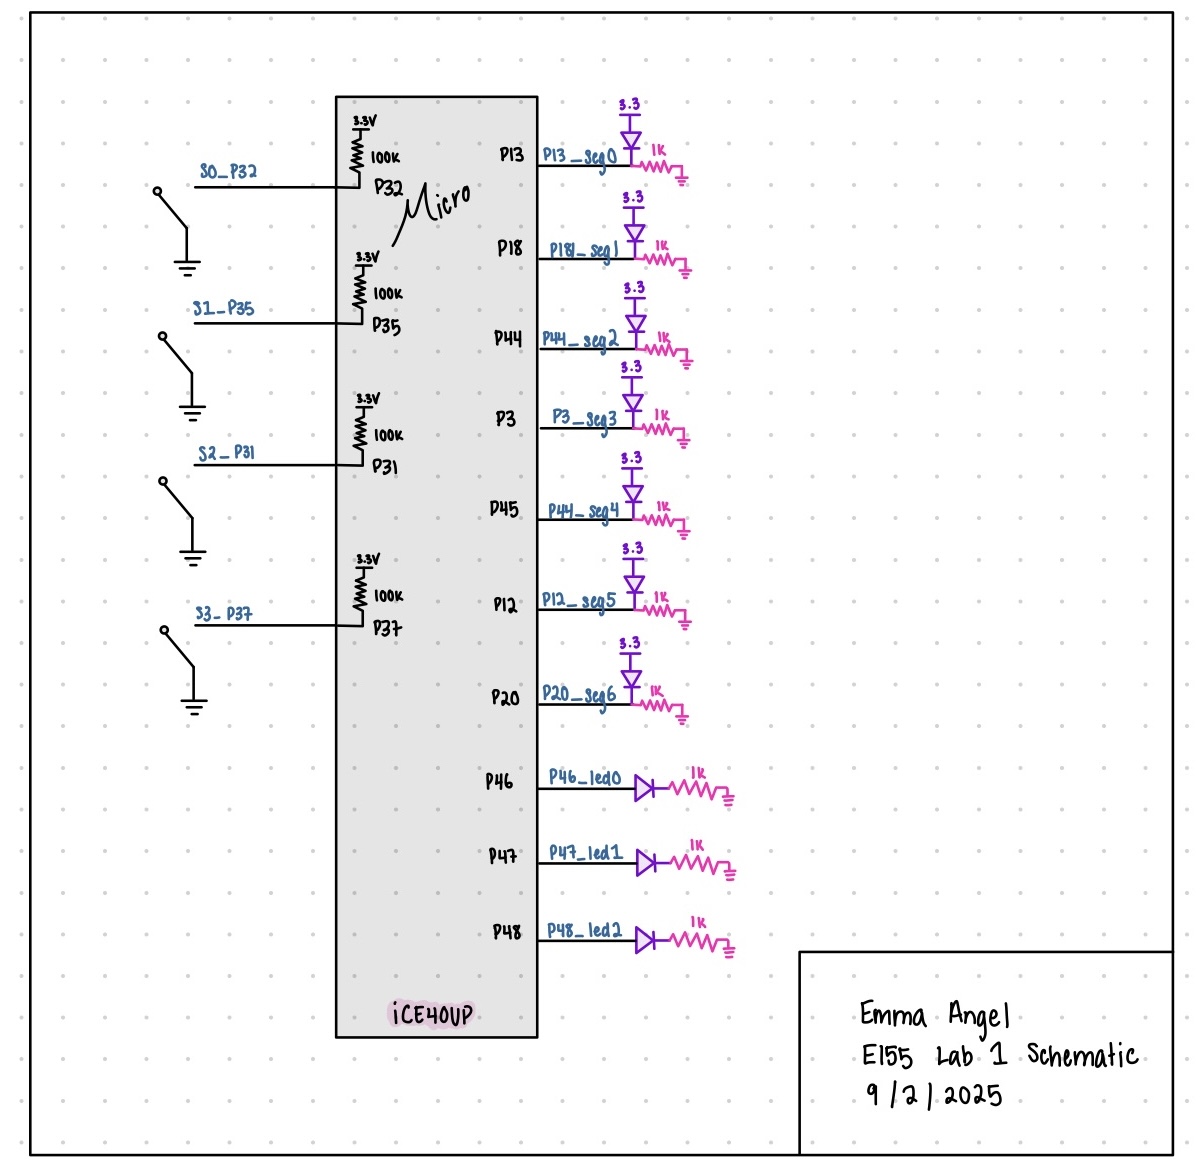 3.3V
100K
S0_P32
P32
Micro
3.3V
100K
S1_P35
P35
3.3V
100K
S2_P31
P31
3.3V
100K
S3_P37
P37
iCE40UP
3.3
P13
P13_seg0
1K
3.3
P18
P181_seg1
1K
3.3
P44
P44_seg2
1K
3.3
P3
P3_seg3
1K
3.3
P45
P44_seg4
1K
3.3
P12
P12_seg5
1K
3.3
P20
P20_seg6
1K
P46
P46_led0
1K
P47
P47_led1
1K
P48
P48_led2
1K
Emma Angel
E155 Lab 1 Schematic
9/2/2025